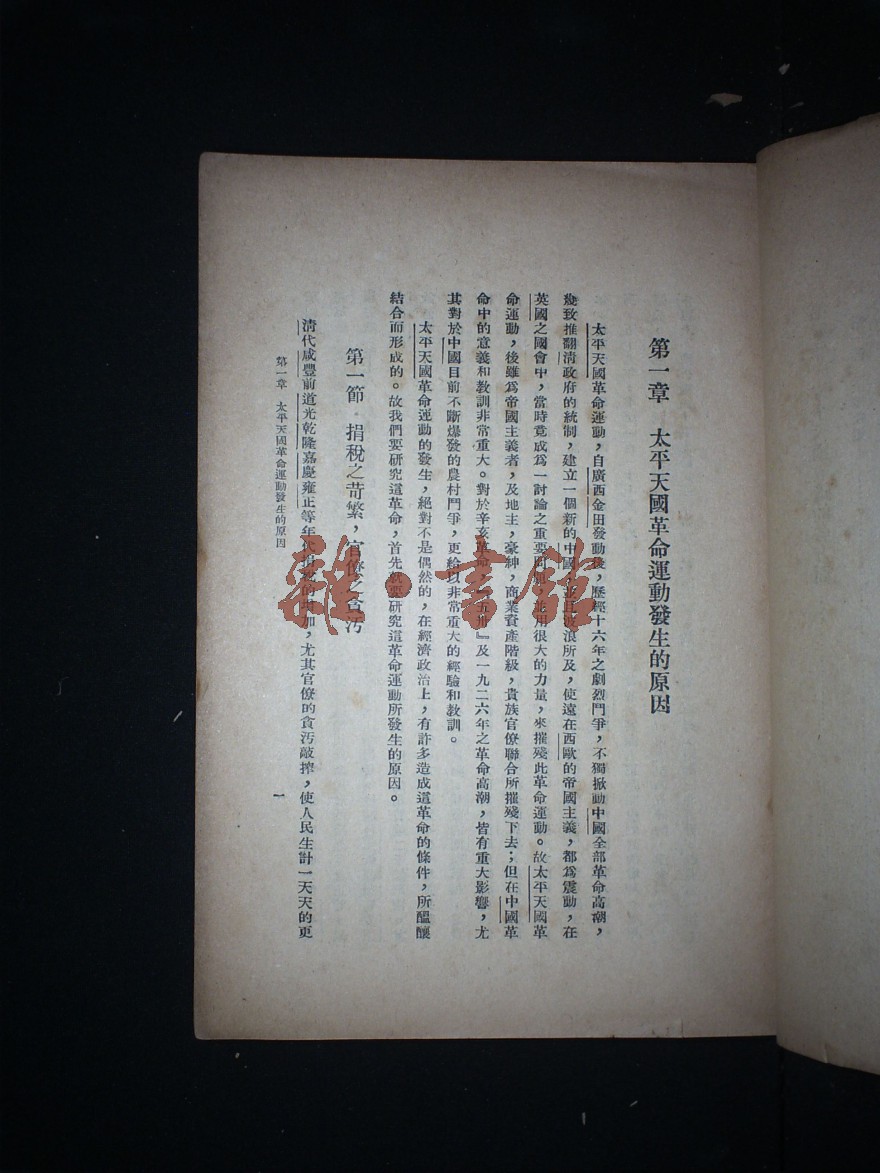 第一章　太平天國革命運動發生的原因
太平天國革命運動，自廣西金田發動後，歷經十六年之劇烈鬥爭，不獨掀動中國全部革命高潮，
幾致推翻清政府的統制，建立一個新的中國，並且波浪所及，使遠在西歐的帝國主義，都為震動，在
英國之國會中，當時竟成為一討論之重要問題，並用很大的力量，來摧殘此革命運動。故太平天國革
命運動，後雖為帝國主義者，及地主，豪紳，商業資產階級，貴族官僚聯合所摧殘下去；但在中國革
命中的意義和教訓非常重大。對於辛亥革命，『五卅』及一九二六年之革命高潮，皆有重大影響，尤
其對於中國目前不斷爆發的農村鬥爭，更給以非常重大的經驗和教訓。
太平天國革命運動的發生，絕對不是偶然的，在經濟政治上，有許多造成這革命的條件，所醞釀
結合而形成的。故我們要研究這革命，首先就要研究這革命運動所發生的原因。
第一節　捐稅之苛繁，官僚之貪污
清代咸豐前道光乾隆嘉慶雍正等年代捐稅的增加，尤其官僚的貪污敲搾，使人民生計一天天的更
第一章　太平天國革命運動發生的原因
一
雜·書館